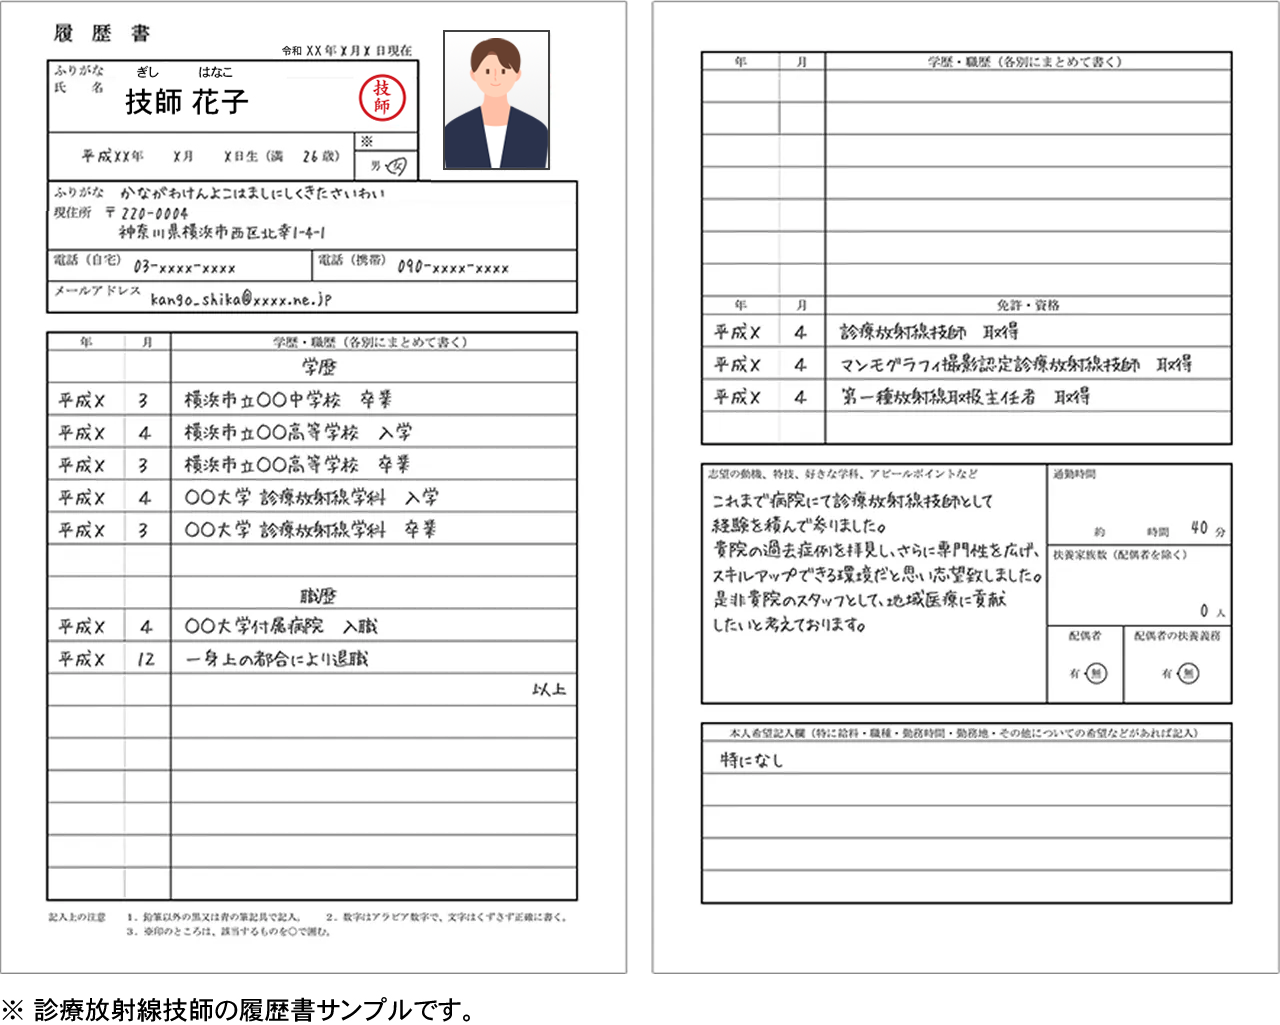 履歴書
令和 XX 年 X 月 X 日現在
ふりがな ぎし はなこ
氏 名 技師 花子
技師
平成XX年 X月 X日生（満 26 歳）
※
男・女
ふりがな かながわけんよこはましにしくきたさいわい
現住所 〒220-0004
神奈川県横浜市西区北幸1-4-1
電話（自宅） 03-xxxx-xxxx 電話（携帯） 090-xxxx-xxxx
メールアドレス kango_shika@xxxx.ne.jp
年 月 学歴・職歴（各別にまとめて書く）
学歴
平成X 3 横浜市立〇〇中学校 卒業
平成X 4 横浜市立〇〇高等学校 入学
平成X 3 横浜市立〇〇高等学校 卒業
平成X 4 〇〇大学 診療放射線学科 入学
平成X 3 〇〇大学 診療放射線学科 卒業
職歴
平成X 4 〇〇大学付属病院 入職
平成X 12 一身上の都合により退職
以上
記入上の注意 1．鉛筆以外の黒又は青の筆記具で記入。 2．数字はアラビア数字で、文字はくずさず正確に書く。
3．※印のところは、該当するものを〇で囲む。
年 月 学歴・職歴（各別にまとめて書く）
年 月 免許・資格
平成X 4 診療放射線技師 取得
平成X 4 マンモグラフィ撮影認定診療放射線技師 取得
平成X 4 第一種放射線取扱主任者 取得
志望の動機、特技、好きな学科、アピールポイントなど
これまで病院にて診療放射線技師として
経験を積んで参りました。
貴院の過去症例を拝見し、さらに専門性を広げ、
スキルアップできる環境だと思い志望致しました。
是非貴院のスタッフとして、地域医療に貢献
したいと考えております。
通勤時間
約 時間 40 分
扶養家族数（配偶者を除く）
0 人
配偶者 配偶者の扶養義務
有・無 有・無
本人希望記入欄（特に給料・職種・勤務時間・勤務地・その他についての希望などがあれば記入）
特になし
※ 診療放射線技師の履歴書サンプルです。